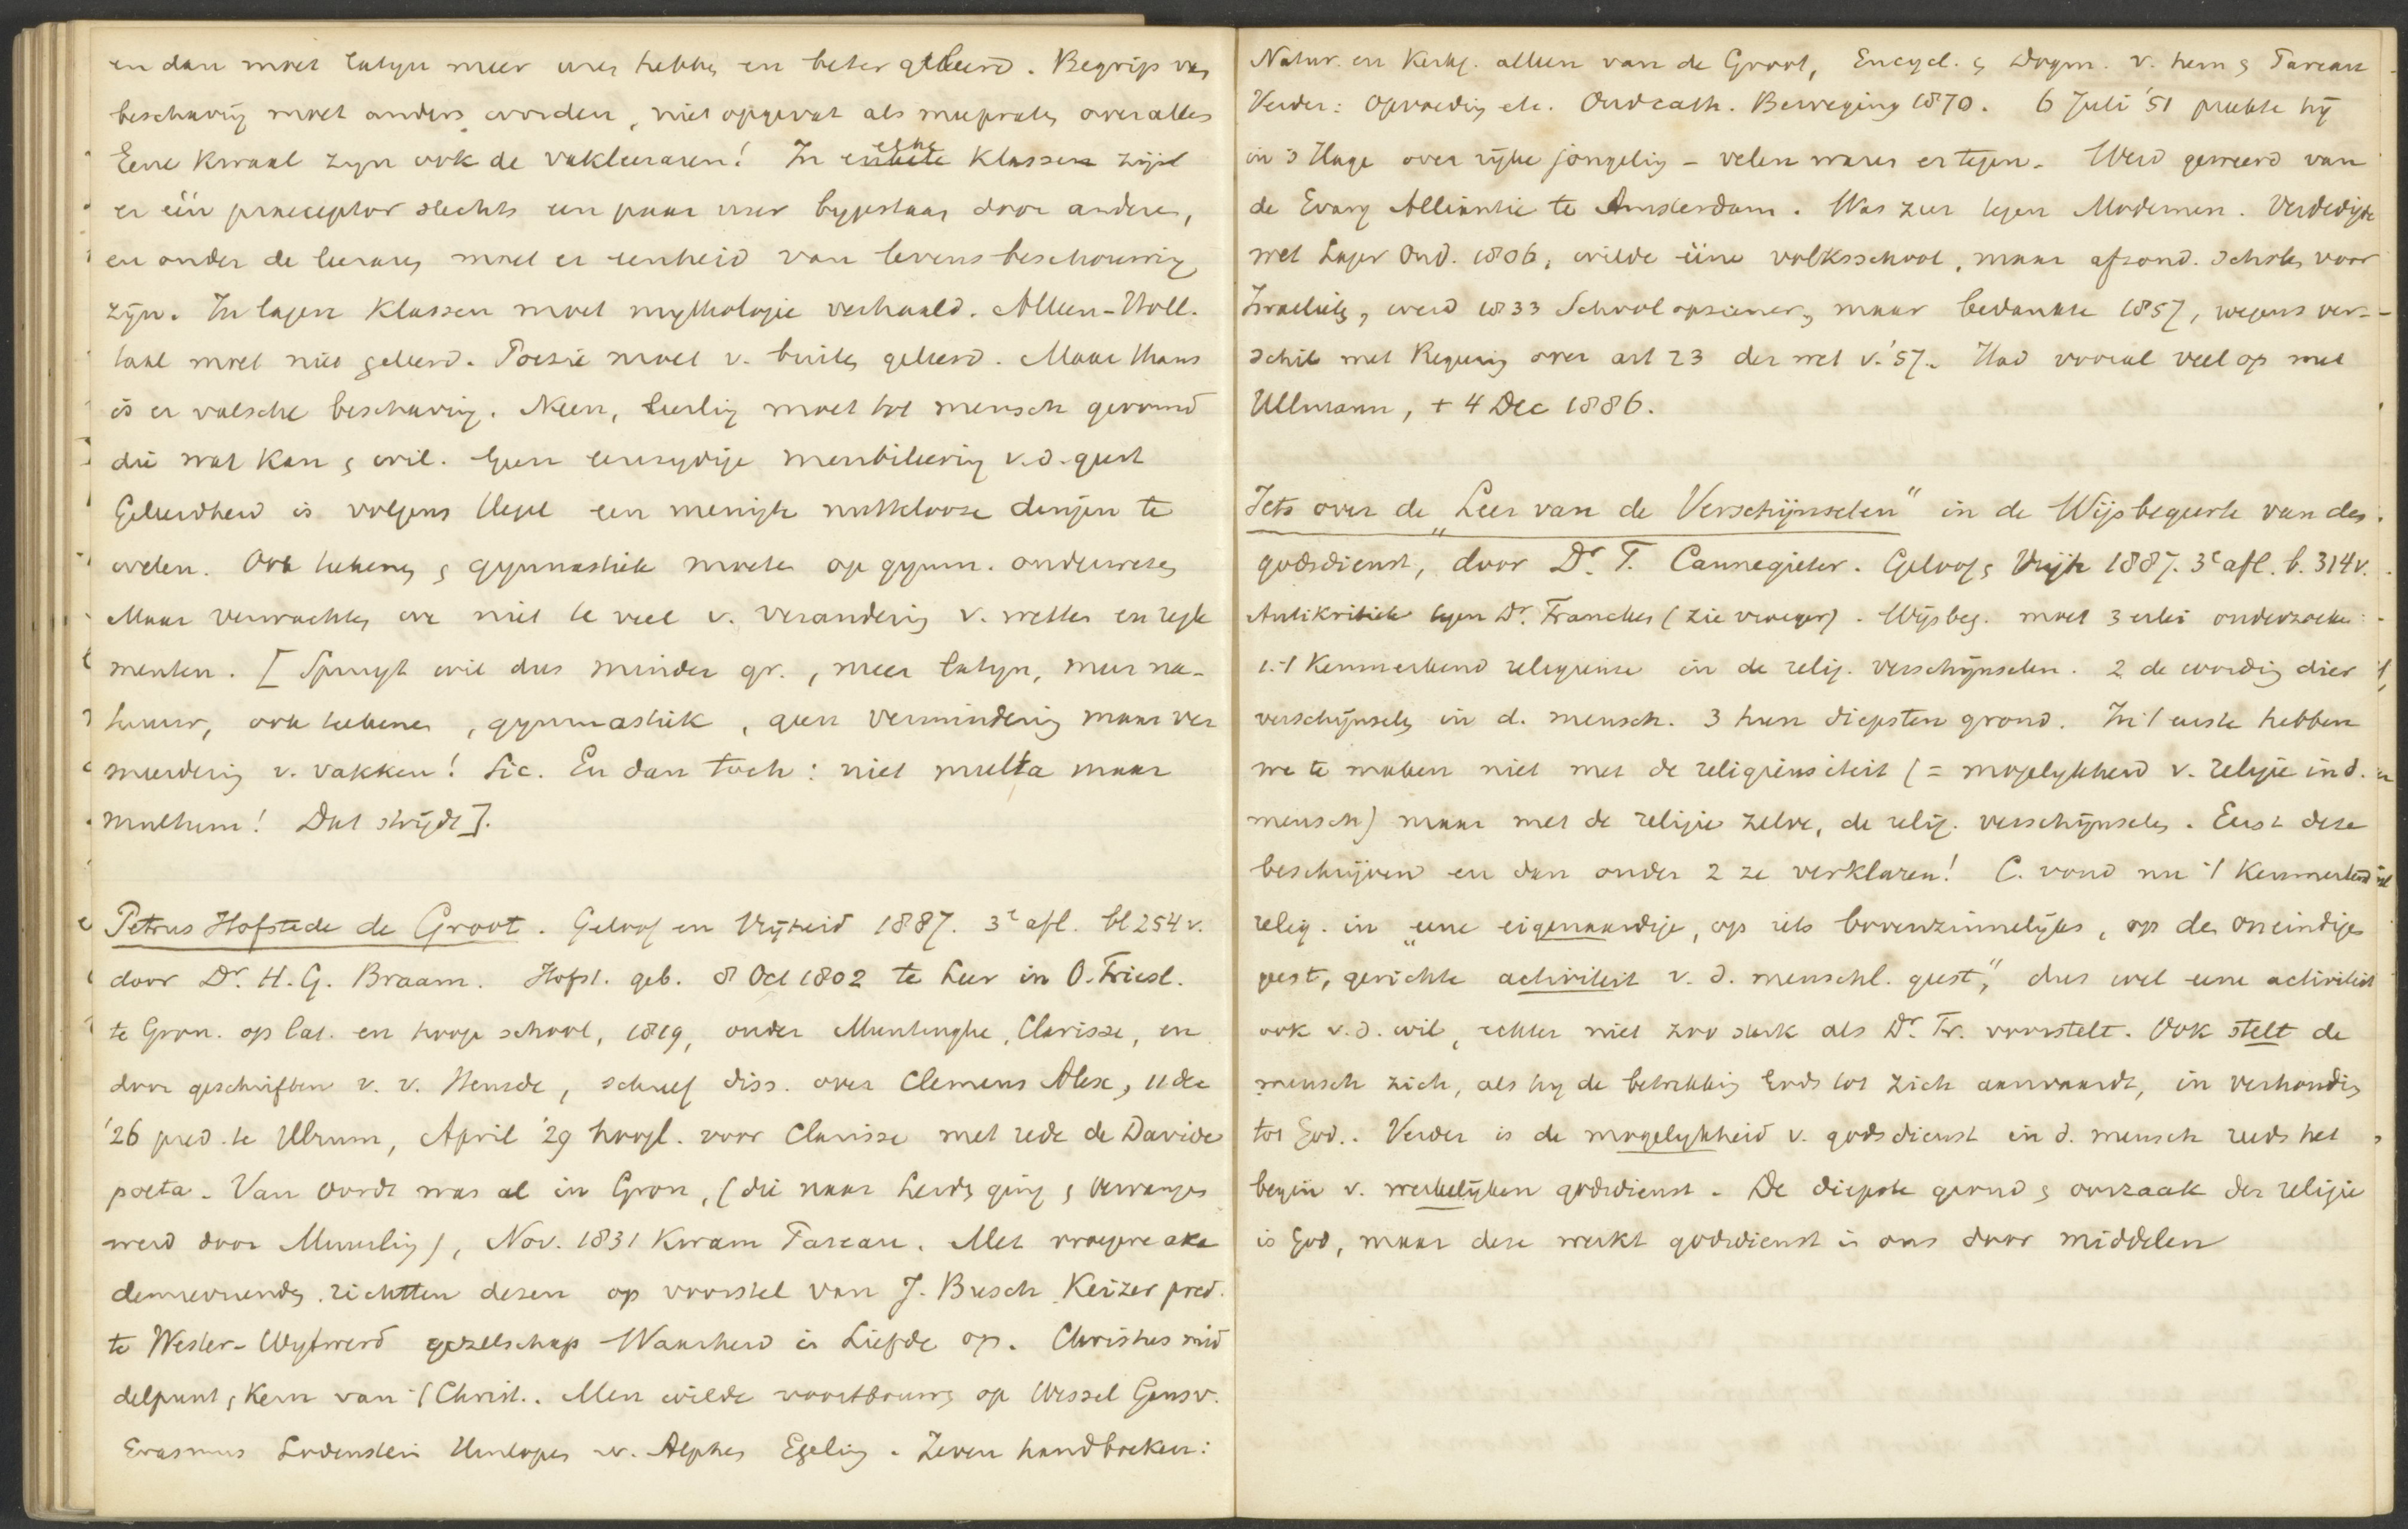 en dan moet Latyn meer uren hebben en beter geleerd. Begrip van
beschaving moet anders worden, niet opgevat als meepraten over alles
Eene kwaal zyn ook de vakleeraren! In elke klasse zij
er één praeceptor slechts een paar uur bygestaan door anderen,
en onder de leeraren moet er eenheid van levensbeschouwing
zijn. In lagere klassen moet mythologie verhaald. Alleen-Holl.
taal moet niet geleerd. Poezie moet v. buiten geleerd. Maar thans
is er valsche beschaving. Neen, leerling moet tot mensch gevormd
die wat kan & wil. Geen eenzydige menbileering v.d. geest
Geleerdheid is volgens Hegel een menigte nuttelooze dingen te
weten. Ook tekenen & gymnastiek moeten op gymn. onderwezen
Maar verwachten we niet te veel v. verandering v. wetten en regle
menten. [Spruyt wil dus minder gr., meer Latyn, meer na-
tuur, ook tekenen, gymnastiek, geen vermindering maar ver
meerdering v. vakken! Sic. En dan toch: niet multa maar
multum! Dat strijdt].
Petrus Hofstede de Groot. Geloof en Vrijheid 1887. 3e afl. bl 254 v.
door Dr. H. G. Braam. Hofst. geb. 8 Oct 1802 te Leer in O. Friesl.
te Gron. op lat. en hooge school, 1819, onder Muntinghe, Clarisse, en
door geschriften v. v. Heusde, schreef diss. over Clemens Alex, 11 dec
'26 pred. te Ulrum, April '29 hoogl. voor Clarisse met rede de Davide
poeta. Van Oordt was al in Gron, (die naar Leiden ging & vervangen
werd door Muurling), Nov. 1831 kwam Pareau. Met vroegere aka
demievrienden richtten dezen op voorstel van J. Busch Keizer pred.
te Wester-Wytwerd gezelschap Waarheid in Liefde op. Christus mid
delpunt, kern van 't Christ.. Men wilde voortbouwen op Wessel Gansv.
Erasmus Lodenstein v. Alphen Egeling. Zeven handboeken:
Natur. en Kerkg. alleen van de Groot, Encycl. & Dogm. v. hem & Pareau
Verder: opvoeding etc. Oudcath. Beweging 1870. 6 Juli '51 preekte hij
in 's Hage over rijke jongeling - velen waren er tegen. Werd geweerd van
de Evang Alliantie te Amsterdam. Was zeer tegen Modernen. Verdedigde
wet Lager Ond. 1806, wilde ééne volksschool, maar afzond. scholen voor
Israelieten, werd 1833 Schoolopziener, maar bedankte 1857, wegens ver-
schil met Regering over art 23 der wet v. '57. Had vooral veel op met
Ullmann, + 4 Dec 1886.
Iets over de „Leer van de Verschijnselen" in de Wijsbegeerte van den
godsdienst, door Dr. T. Cannegieter. Geloof & Vrijh 1887. 3e afl. b. 314 v.
Antikritiek tegen Dr. Francken (zie vroeger). Wijsbeg. moet 3 erlei onderzoeken:
1. 't kenmerkend religieuse in de relig. verschijnselen. 2 de wording dier
verschijnselen in d. mensch. 3 hun diepsten grond. In 't eerste hebben
we te maken niet met de religieusiteit (= mogelykheid v. religie in d.
mensch) maar met de religie zelve, de relig. verschijnselen. Eerst deze
beschrijven en dan onder 2 ze verklaren! C. vond nu 't kenmerkend
relig. in „eene eigenaardige, op iets bovenzinnelijks, op den oneindigen
geest, gerichte activiteit v. d. menschl. geest", dus wel eene activiteit
ook v. d. wil, echter niet zoo sterk als Dr. Fr. voorstelt. Ook stelt de
mensch zich, als hy de betrekking Gods tot zich aanvaardt, in verhouding
tot God.. Verder is de mogelykheid v. godsdienst in d. mensch reeds het
begin v. werkelijken godsdienst. De diepste grond & oorzaak der religie
is God, maar deze werkt godsdienst in ons door middelen